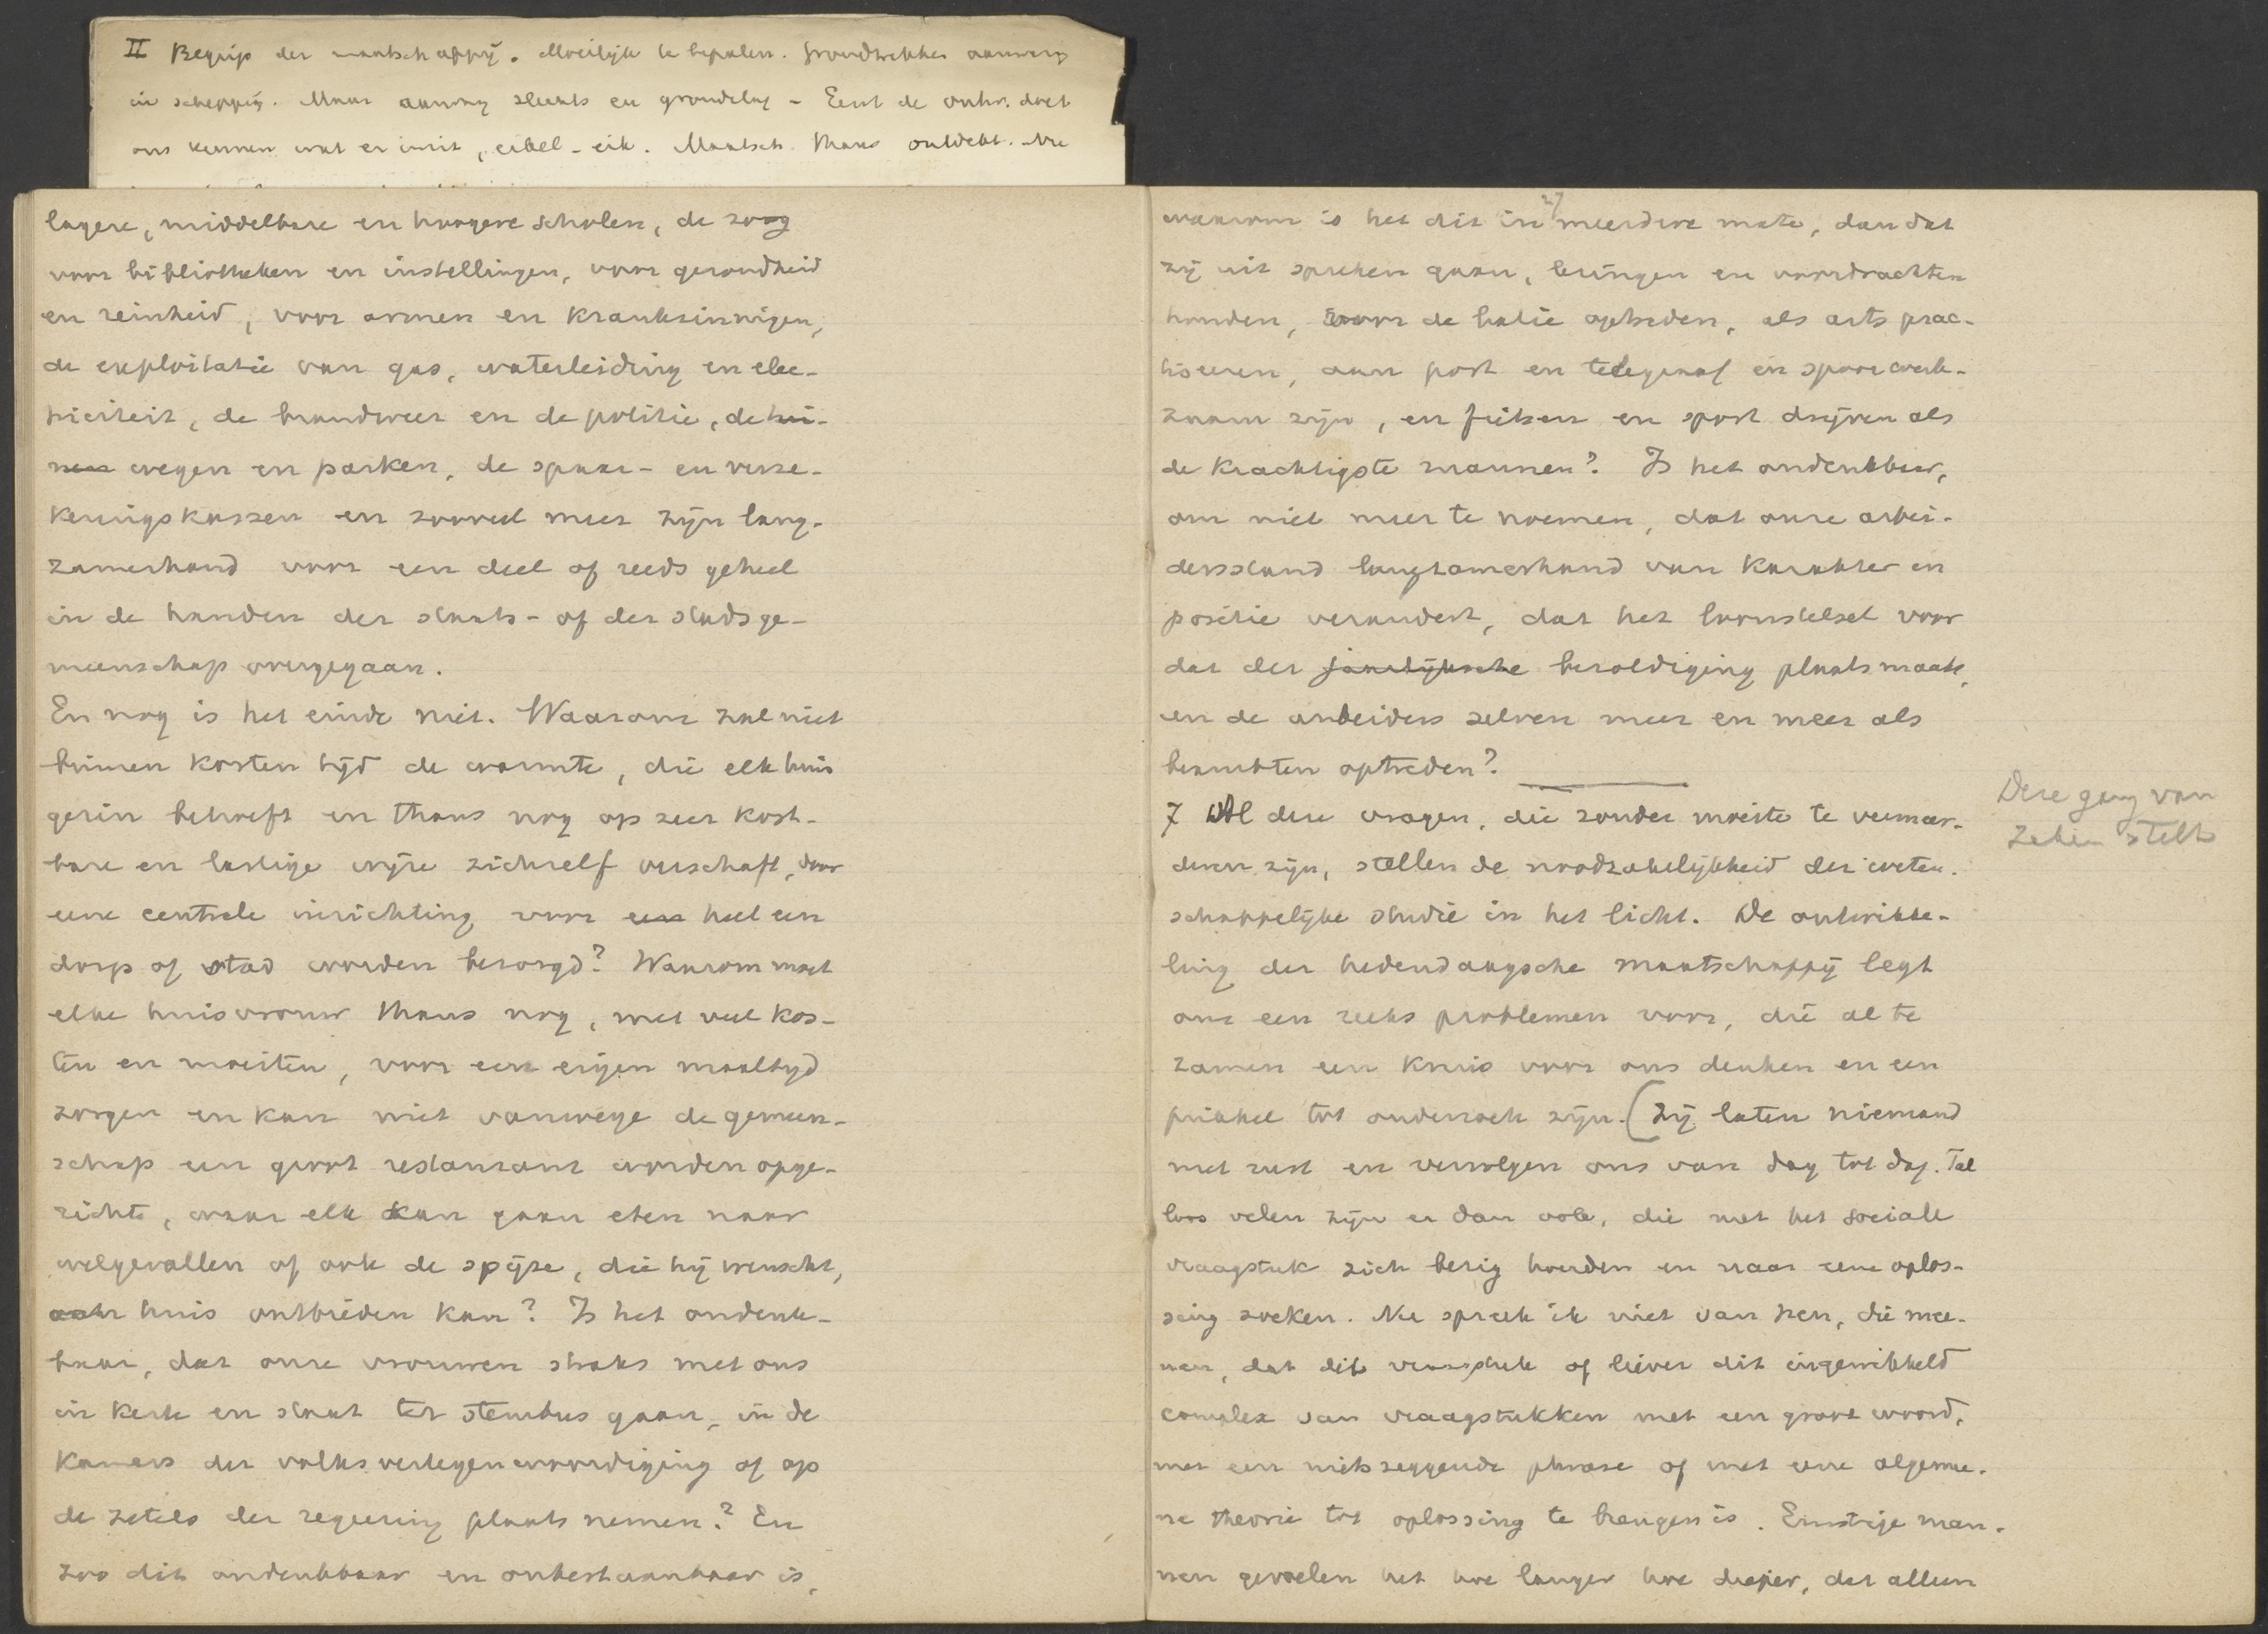 II Begrip der maatschappij. Moeilijk te bepalen. Grondtrekken aanwezig
in schepping. Maar aanvang slechts en grondslag - Eerst de ontw. doet
ons kennen wat er in is, eikel - eik. Maatsch. thans ontdekt. Nu
lagere, middelbare en hoogere scholen, de zorg
voor bibliotheken en instellingen, voor gezondheid
en reinheid, voor armen en krankzinnigen,
de exploitatie van gas, waterleiding en elec-
triciteit, de brandweer en de politie, de
wegen en parken, de spaar- en verze-
keringskassen en zooveel meer zijn lang-
zamerhand voor een deel of reeds geheel
in de handen der staats- of der stadsge-
meenschap overgegaan.
En nog is het einde niet. Waarom zal niet
binnen korten tijd de warmte, die elk huis
gezin behoeft en thans nog op zeer kost-
bare en lastige wijze zichzelf verschaft, door
eene centrale inrichting voor een heel een
dorp of stad worden bezorgd? Waarom moet
elke huisvrouw thans nog, met veel kos-
ten en moeiten, voor een eigen maaltijd
zorgen en kan niet vanwege de gemeen-
schap een groot restaurant worden opge-
richt, waar elk kan gaan eten naar
welgevallen of ook de spijze, die hij wenscht,
aan huis ontbieden kan? Is het ondenk-
baar, dat onze vrouwen straks met ons
in kerk en staat ter stembus gaan, in de
Kamers der volksvertegenwoordiging of op
de zetels der regeering plaats nemen? En
zoo dit ondenkbaar en onbestaanbaar is,
waarom is het dit in meerdere mate, dan dat
zij uit spreken gaan, lezingen en voordrachten
houden, voor de balie optreden, als arts prac-
tiseeren, aan post en telegraaf en spoor werk-
zaam zijn, en fietsen en sport drijven als
de krachtigste mannen? Is het ondenkbaar,
om niet meer te noemen, dat onze arbei-
dersstand langzamerhand van karakter en
positie verandert, dat het loonstelsel voor
dat der jaarlijksche bezoldiging plaats maakt,
en de arbeiders zelven meer en meer als
beambten optreden?
7 Al deze vragen, die zonder moeite te vermeer-
deren zijn, stellen de noodzakelijkheid der weten-
schappelijke studie in het licht. De ontwikke-
ling der hedendaagsche maatschappij legt
ons een reeks problemen voor, die al te
zamen een kruis voor ons denken en een
prikkel tot onderzoek zijn. (Zij laten niemand
met rust en vervolgen ons van dag tot dag. Tal
loos velen zijn er dan ook, die met het sociale
vraagstuk zich bezig houden en naar eene oplos-
sing zoeken. Nu spreek ik niet van hen, die mee-
nen, dat dit vraagstuk of liever dit ingewikkeld
complex van vraagstukken met een groot woord,
met een nietszeggende phrase of met eene algemee-
ne theorie tot oplossing te brengen is. Ernstige man-
nen gevoelen het hoe langer hoe dieper, dat alleen
Deze gang van
zaken stelt